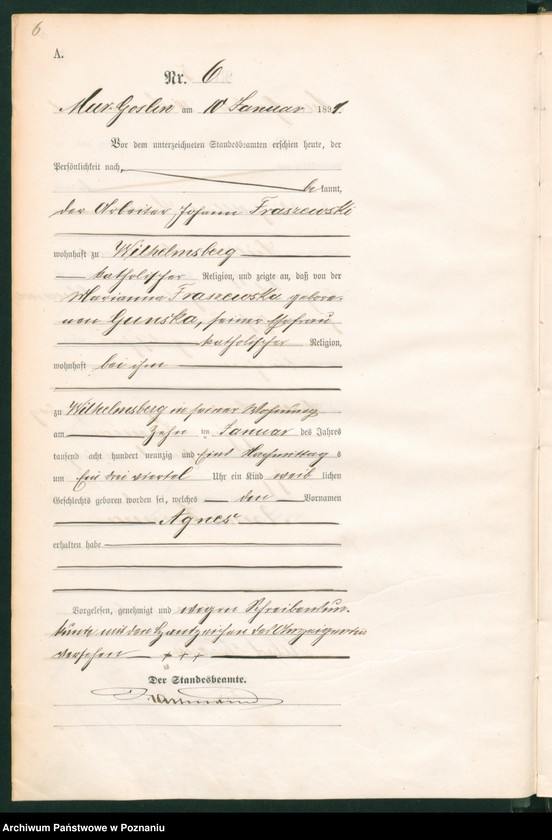 6
A.
Nr. 6
Mur. Goslin am 10 Januar 1891.
Vor dem unterzeichneten Standesbeamten erschien heute, der
Persönlichkeit nach,
be kannt,
der Arbeiter Johann Fraszewski
wohnhaft zu Wilhelmsberg
katholischer Religion, und zeigte an, daß von der
Marianna Fraszewska gebore-
nen Gunska, seiner Ehefrau
katholischer Religion,
wohnhaft bei ihm
zu Wilhelmsberg in seiner Wohnung
am Zehn ten Januar des Jahres
tausend acht hundert neunzig und Eins Nachmittag s
um Ein drei viertel Uhr ein Kind weib lichen
Geschlechts geboren worden sei, welches den Vornamen
Agnes
erhalten habe
Vorgelesen, genehmigt und wegen Schreibensun-
kunde mit den Handzeichen des Anzeigenden
versehen + + +
Der Standesbeamte.
Archiwum Państwowe w Poznaniu